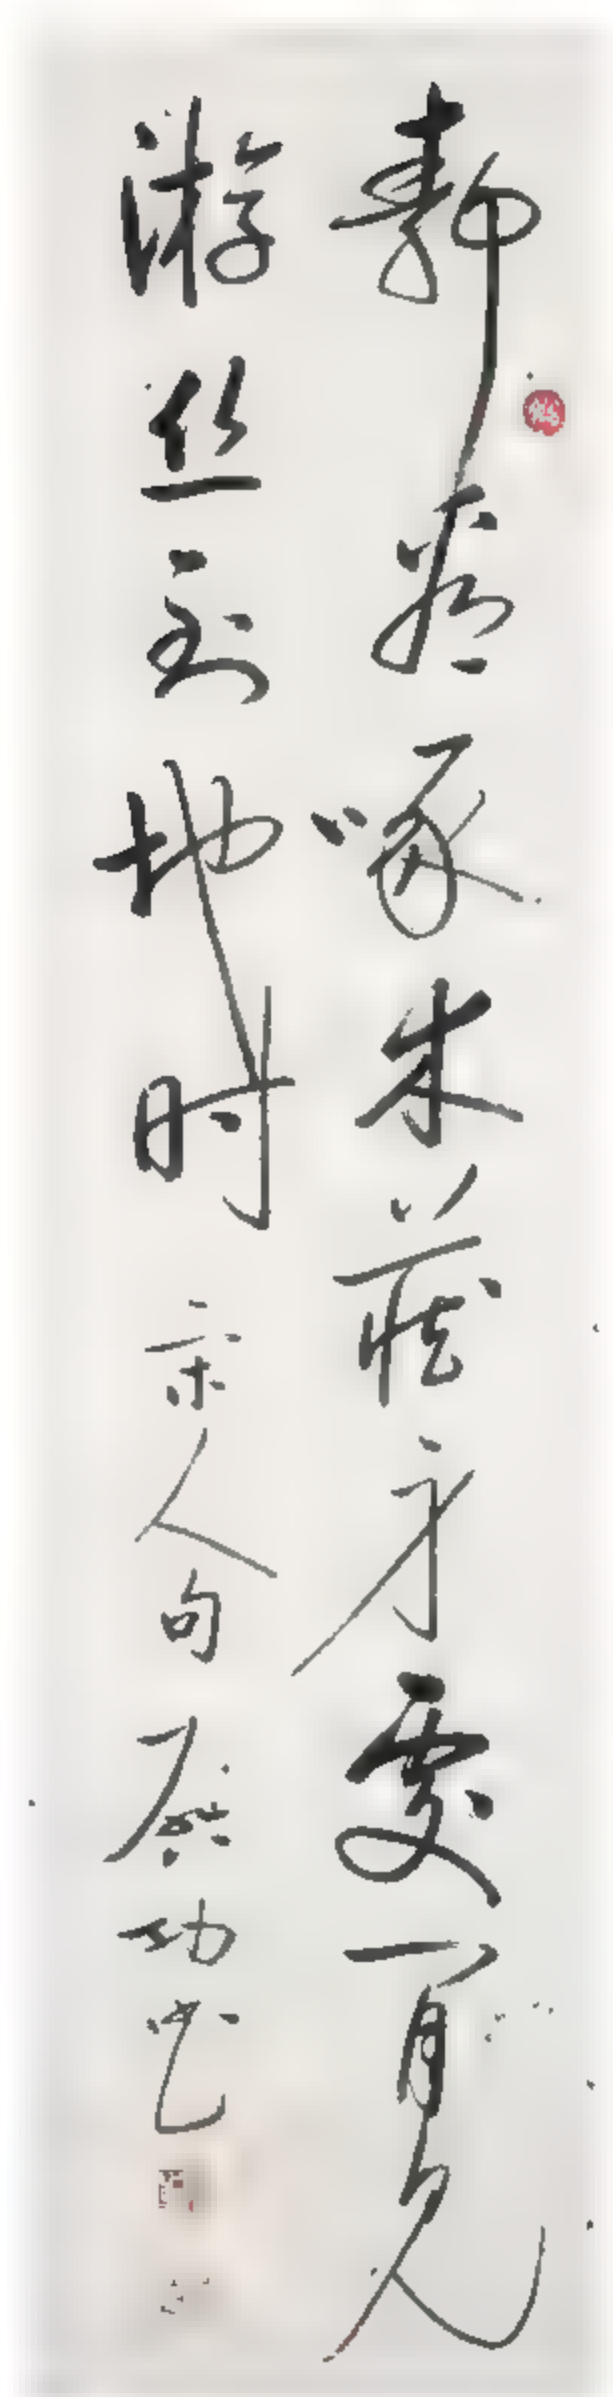 静看啄木藏身處閒見
游丝到地时宋人句启功书